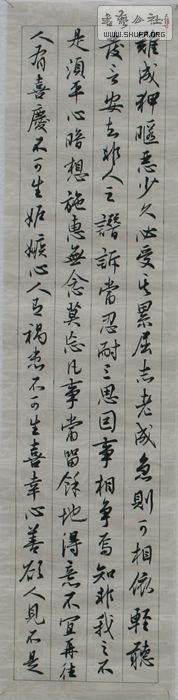 書藝公社
WWW.SHUFA.ORG
難成狎暱惡少久必受其累屈志老成急則可相依輕聽
發言安知非人之譖訴當忍耐三思因事相爭焉知非我之不
是須平心暗想施惠無念莫忘凡事當留餘地得意不宜再往
人有喜慶不可生妬嫉心人有禍患不可生喜幸心善欲人見不是